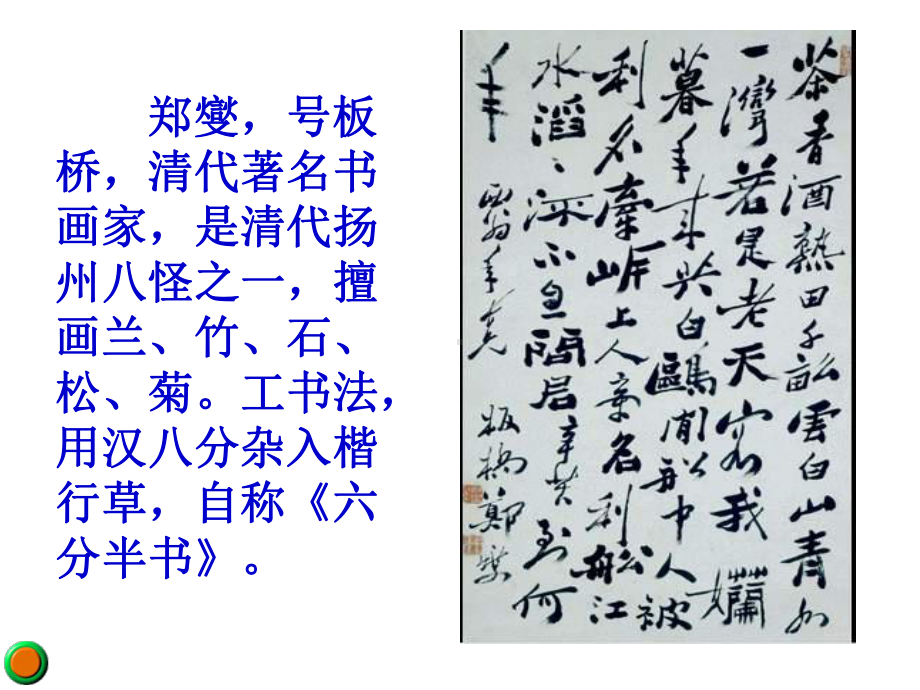 郑燮，号板
桥，清代著名书
画家，是清代扬
州八怪之一，擅
画兰、竹、石、
松、菊。工书法，
用汉八分杂入楷
行草，自称《六
分半书》。
茶香酒熟田千畝雲白山青水
一灣若是老天容我嬾
暮年來與白鷗閒舩中人被
利名牽岸上人牽名利舩江
水滔〻流不息君辛苦到何
年
翁年老兄
板橋鄭燮